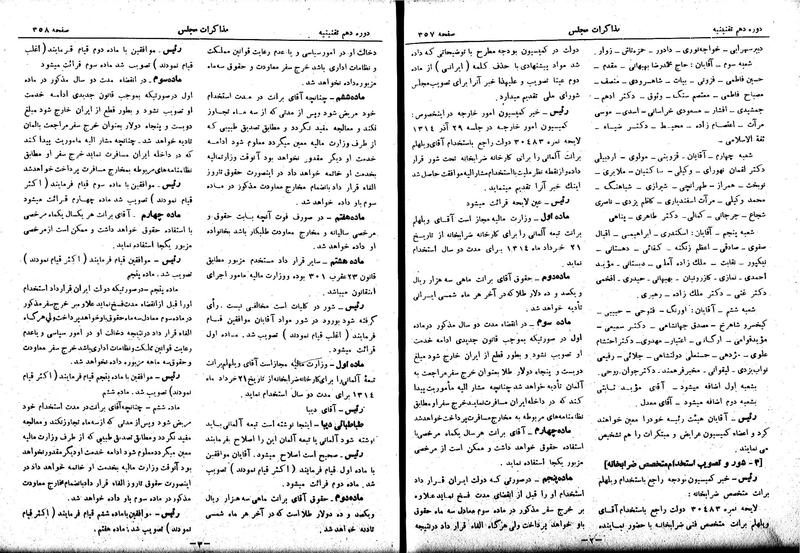 دوره دهم تقنینیه
مذاکرات مجلس
صفحه ۳۵۷
دبیرسهرابی - خواجه‌نوری - دادور - حمزه‌تاش - زوار
شعبه سوم - آقایان: حاج محمدرضا بهبهانی - مقدم -
حسین فاطمی - فزونی - بیات - شاهرودی - منصف -
مصباح فاطمی - معتصم سنک - وثوق - دکتر ادهم -
جمشیدی - افشار - مسعودی خراسانی - اسدی - موسی
مرآت - اعتصام زاده - محیط - دکتر ضیاء -
ثقة الاسلامی -
شعبه چهارم - آقایان: قزوینی - مولوی - اردبیلی
دکتر لقمان نهورای - وکیلی - ساکنیان - ملایری -
نوبخت - همراز - طهرانچی - شیرازی - شباهنگ -
محمد وکیلی - مرآت اسفندیاری - کاظم یزدی - ناصری
شجاع - جرجانی - کمالی - دکتر طاهری - پناهی
شعبه پنجم - آقایان: اسکندری - ابراهیمی - اقبال
صفوی - صادقی - اعظم زنگنه - کفائی - دهستانی -
نیکپور - نقابت - ملک زاده آملی - دبستانی - مؤید
احمدی - نمازی - کازرونیان - بهبهانی - حیدری - افخمی
دکتر غنی - دکتر ملک زاده - رهبری -
شعبه ششم - آقایان: اورنگ - فتوحی - حبیبی -
کیخسرو شاهرخ - مصدق جهانشاهی - دکتر سمیعی -
مؤیدقوامی - ارگانی - اعتبار - مهدوی - دکتر احتشام
علوی - مژدهی - حسنعلی دولتشاهی - جلائی - رفیعی
نواب‌یزدی - لیقوانی - مخبرفرهمند - دکترجوان - روحی -
بشعبه اول اضافه میشود - آقای مؤید ثابتی
بشعبه دوم اضافه میشود - آقای معدل
رئیس - آقایان هیئت رئیسه خود را معین خواهند
کرد و اعضاء کمیسیون عرایض و مبتکرات را هم تشخیص
می نمایند.
[۴ - شور و تصویب استخدام متخصص ضرابخانه]
رئیس - خبر کمیسیون بودجه راجع باستخدام ویلهلم
برانت متخصص ضرابخانه:
لایحه نمره ۳۰۴۸۳ دولت راجع باستخدام آقای
ویلهلم برانت متخصص فنی ضرابخانه با حضور نماینده
دولت در کمیسیون بودجه مطرح با توضیحاتی که داده
شد مواد پیشنهادی با حذف کلمه (ایرانی) از ماده
دوم عینا تصویب و علیهذا خبر آنرا برای تصویب مجلس
شورای ملی تقدیم میدارد.
رئیس - خبر کمیسیون امور خارجه در اینخصوص:
کمیسیون امور خارجه در جلسه ۲۹ آذر ۱۳۱۴
لایحه نمره ۳۰۴۸۳ دولت راجع باستخدام آقای ویلهلم
برانت آلمانی را برای کارخانه ضرابخانه تحت شور قرار
داده و از نقطه نظر ملیت با استخدام مشارالیه موافقت حاصل شد
اینك خبر آنرا تقدیم مینماید.
رئیس - عین لایحه قرائت میشود
ماده اول - وزارت مالیه مجاز است آقای ویلهلم
برانت تبعه آلمانی را برای کارخانه ضرابخانه از تاریخ
۲۱ خرداد ماه ۱۳۱۴ برای مدت دو سال استخدام
نماید.
ماده دوم - حقوق آقای برانت ماهی سه هزار ریال
و یکصد و ده دولار طلا است که در آخر هر ماه شمسی ایرانی
تأدیه خواهد شد.
ماده سوم - در انقضاء مدت دو سال مذکور در ماده
اول در صورتیکه بموجب قانون جدیدی ادامه خدمت
او تصویب نشود و بطور قطع از ایران خارج شود مبلغ
دویست و پنجاه دولار طلا بعنوان خرج سفر مراجعت به
آلمان تأدیه خواهد شد چنانچه مشار الیه مأموریت پیدا
کند که در داخله ایران مسافرت نماید خرج سفر او مطابق
نظامنامه‌های مربوطه به مخارج مسافرت پرداخت خواهد شد
ماده چهارم - آقای برانت هر یکسال یکماه مرخصی با
استفاده حقوق خواهد داشت و ممکن است از مرخصی
مزبور یکجا استفاده نماید.
ماده پنجم - در صورتی که دولت ایران قرار داد
استخدام او را قبل از انقضای مدت فسخ نماید علاوه
بر خرج سفر مذکور در ماده سوم معادل سه ماه حقوق
باو خواهد پرداخت ولی هرگاه الغاء قرار داد در نتیجه
- ۲ -
دوره دهم تقنینیه
مذاکرات مجلس
صفحه ۳۵۸
دخالت او در امور سیاسی و یا عدم رعایت قوانین مملکت
و نظامات اداری باشد خرج سفر معاودت و حقوق سه ماه
مزبوره داده نخواهد شد.
ماده ششم - چنانچه آقای برانت در مدت استخدام
خود مریض شود پس از مدتی که از سه ماه تجاوز
نکند و معالجه مفید نگردد و مطابق تصدیق طبیبی که
از طرف وزارت مالیه معین میگردد معلوم شود ادامه
خدمت او دیگر مقدور نخواهد بود آنوقت وزارت مالیه
بخدمت او خاتمه خواهد داد در اینصورت حقوق تا روز
الغاء قرار داد بانضمام مخارج معاودت مذکور در ماده
سوم باو داده خواهد شد.
ماده هفتم - در صورت فوت آنچه بابت حقوق و
مرخصی سالیانه و مخارج معاودت طلبکار باشد بخانواده
او داده خواهد شد.
ماده هشتم - سایر قرار داد استخدام مزبور مطابق
قانون ۲۳ عقرب ۱۳۰۱ بوده و وزارت مالیه مامور اجرای
این قانون میباشد.
رئیس - شور در کلیات است مخالفی نیست. رأی
گرفته شود بورود در شور مواد آقایان موافقین قیام
فرمایند (اغلب قیام نمودند) تصویب شد. ماده اول
قرائت میشود.
ماده اول - وزارت مالیه مجاز است آقای ویلهلم برانت
تبعه آلمانی را برای کارخانه ضرابخانه از تاریخ ۲۱ خرداد ماه
۱۳۱۴ برای مدت دو سال استخدام نماید.
رئیس - آقای دیبا
طباطبائی دیبا - اینجا نوشته است تبعه آلمانی باید
نوشته شود آلمانی یا تبعه آلمان این را اصلاح فرمایند
رئیس - صحیح است اصلاح میشود. آقایان موافقین
با ماده اول قیام فرمایند (اکثر قیام نمودند) تصویب
شد. ماده دوم قرائت میشود.
ماده دوم - حقوق آقای برانت ماهی سه هزار ریال
و یکصد و ده دولار طلا است که در آخر هر ماه شمسی
تأدیه خواهد شد.
رئیس - موافقین با ماده دوم قیام فرمایند (اغلب
قیام نمودند) تصویب شد ماده سوم قرائت میشود
ماده سوم - در انقضاء مدت دو سال مذکور در ماده
اول در صورتیکه بموجب قانون جدیدی ادامه خدمت
او تصویب نشود و بطور قطع از ایران خارج شود مبلغ
دویست و پنجاه دولار بعنوان خرج سفر مراجعت بآلمان
تأدیه خواهد شد. چنانچه مشار الیه ماموریت پیدا کند
که در داخله ایران مسافرت نماید خرج سفر او مطابق
نظامنامه‌های مربوطه بمخارج مسافرت پرداخت خواهد شد
رئیس - موافقین با ماده سوم قیام فرمایند (اکثر
قیام نمودند) تصویب شد ماده چهارم قرائت میشود
ماده چهارم - آقای برانت هر یکسال یکماه مرخصی
با استفاده حقوق خواهد داشت و ممکن است از مرخصی
مزبور یکجا استفاده نماید.
رئیس - موافقین قیام فرمایند (اکثر قیام نمودند)
تصویب شد. ماده پنجم
ماده پنجم - در صورتیکه دولت ایران قرارداد استخدام
او را قبل از انقضاء مدت فسخ نماید علاوه بر خرج سفر مذکور
در ماده سوم معادل سه ماه حقوق باو خواهد پرداخت ولی هر گاه
الغاء قرار داد در نتیجه دخالت او در امور سیاسی و یا عدم
رعایت قوانین مملکت و نظامات اداری باشد خرج سفر معاودت
و حقوق سه ماهه مزبوره داده نخواهد شد.
رئیس - موافقین با ماده پنجم قیام فرمایند (اکثر قیام
نمودند) تصویب شد. ماده ششم
ماده ششم - چنانچه آقای برانت در مدت استخدام خود
مریض شود پس از مدتی که از سه ماه تجاوز نکند و معالجه
مفید نگردد و مطابق تصدیق طبیبی که از طرف وزارت مالیه
معین میگردد معلوم شود ادامه خدمت او دیگر مقدور نخواهد
بود آنوقت وزارت مالیه بخدمت او خاتمه خواهد داد در
اینصورت حقوق تا روز الغاء قرار داد بانضمام مخارج معاودت
مذکور در ماده سوم باو داده خواهد شد.
رئیس - موافقین با ماده ششم قیام فرمایند (اکثر قیام
نمودند) تصویب شد: ماده هفتم.
- ۳ -